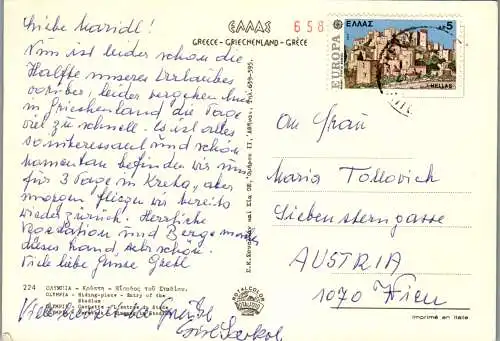 Liebe Maridl!
Nun ist leider schon die
Hälfte unseres Urlaubes
vorüber, leider vergehen hier
in Griechenland die Tage
viel zu schnell. Es ist alles
so interessant und schön
momentan befinden wir uns
für 3 Tage in Kreta, aber
morgen fliegen wir bereits
wieder zurück. Herrliche
Vegetation und Berge machen
dieses Land sehr schön.
Viele liebe Grüsse Gretl
224 ΟΛΥΜΠΙΑ - Κρύπτη - Εἴσοδος τοῦ Σταδίου.
OLYMPIA - Hiding-place - Entry of the
Stadium
Viele
Grüße
ΕΛΛΑΣ
658
GREECE - GRIECHENLAND - GRÈCE
ROYALCOLOR
EUROPA
ΕΛΛΑΣ
5
HELLAS
An Frau
Maria Tollovich
Siebensterngasse
AUSTRIA
1070 Wien
imprimé en Italie